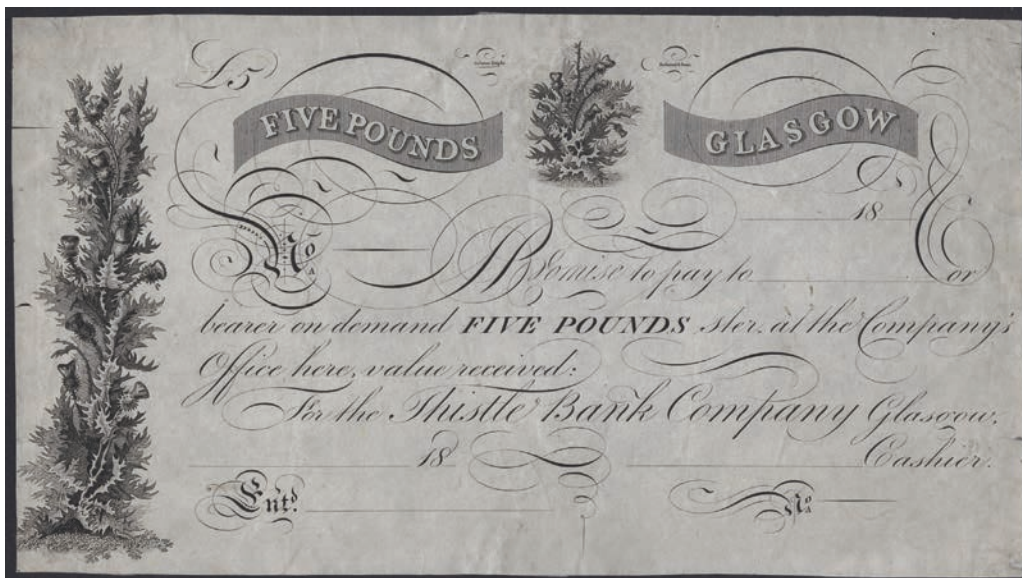 £5
FIVE POUNDS GLASGOW
18
No A
I Promise to pay to or
bearer on demand FIVE POUNDS ster. at the Company's
Office here, value received:
For the Thistle Bank Company Glasgow.
18 Cashier.
Entd. No A